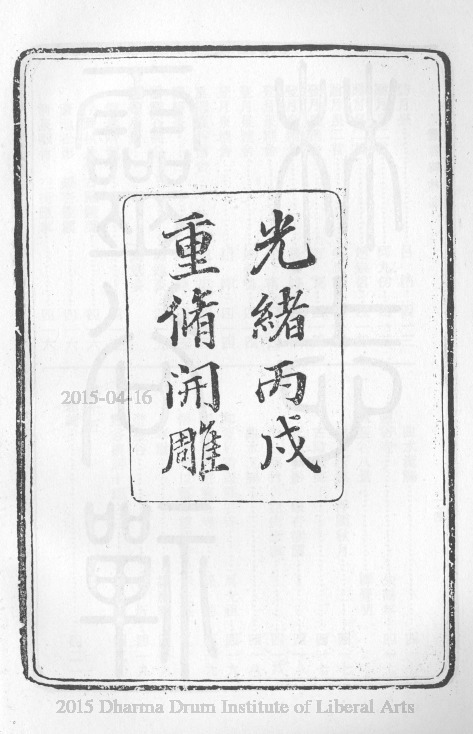 光緒丙戌
重脩開雕
2015-04-16
2015 Dharma Drum Institute of Liberal Arts